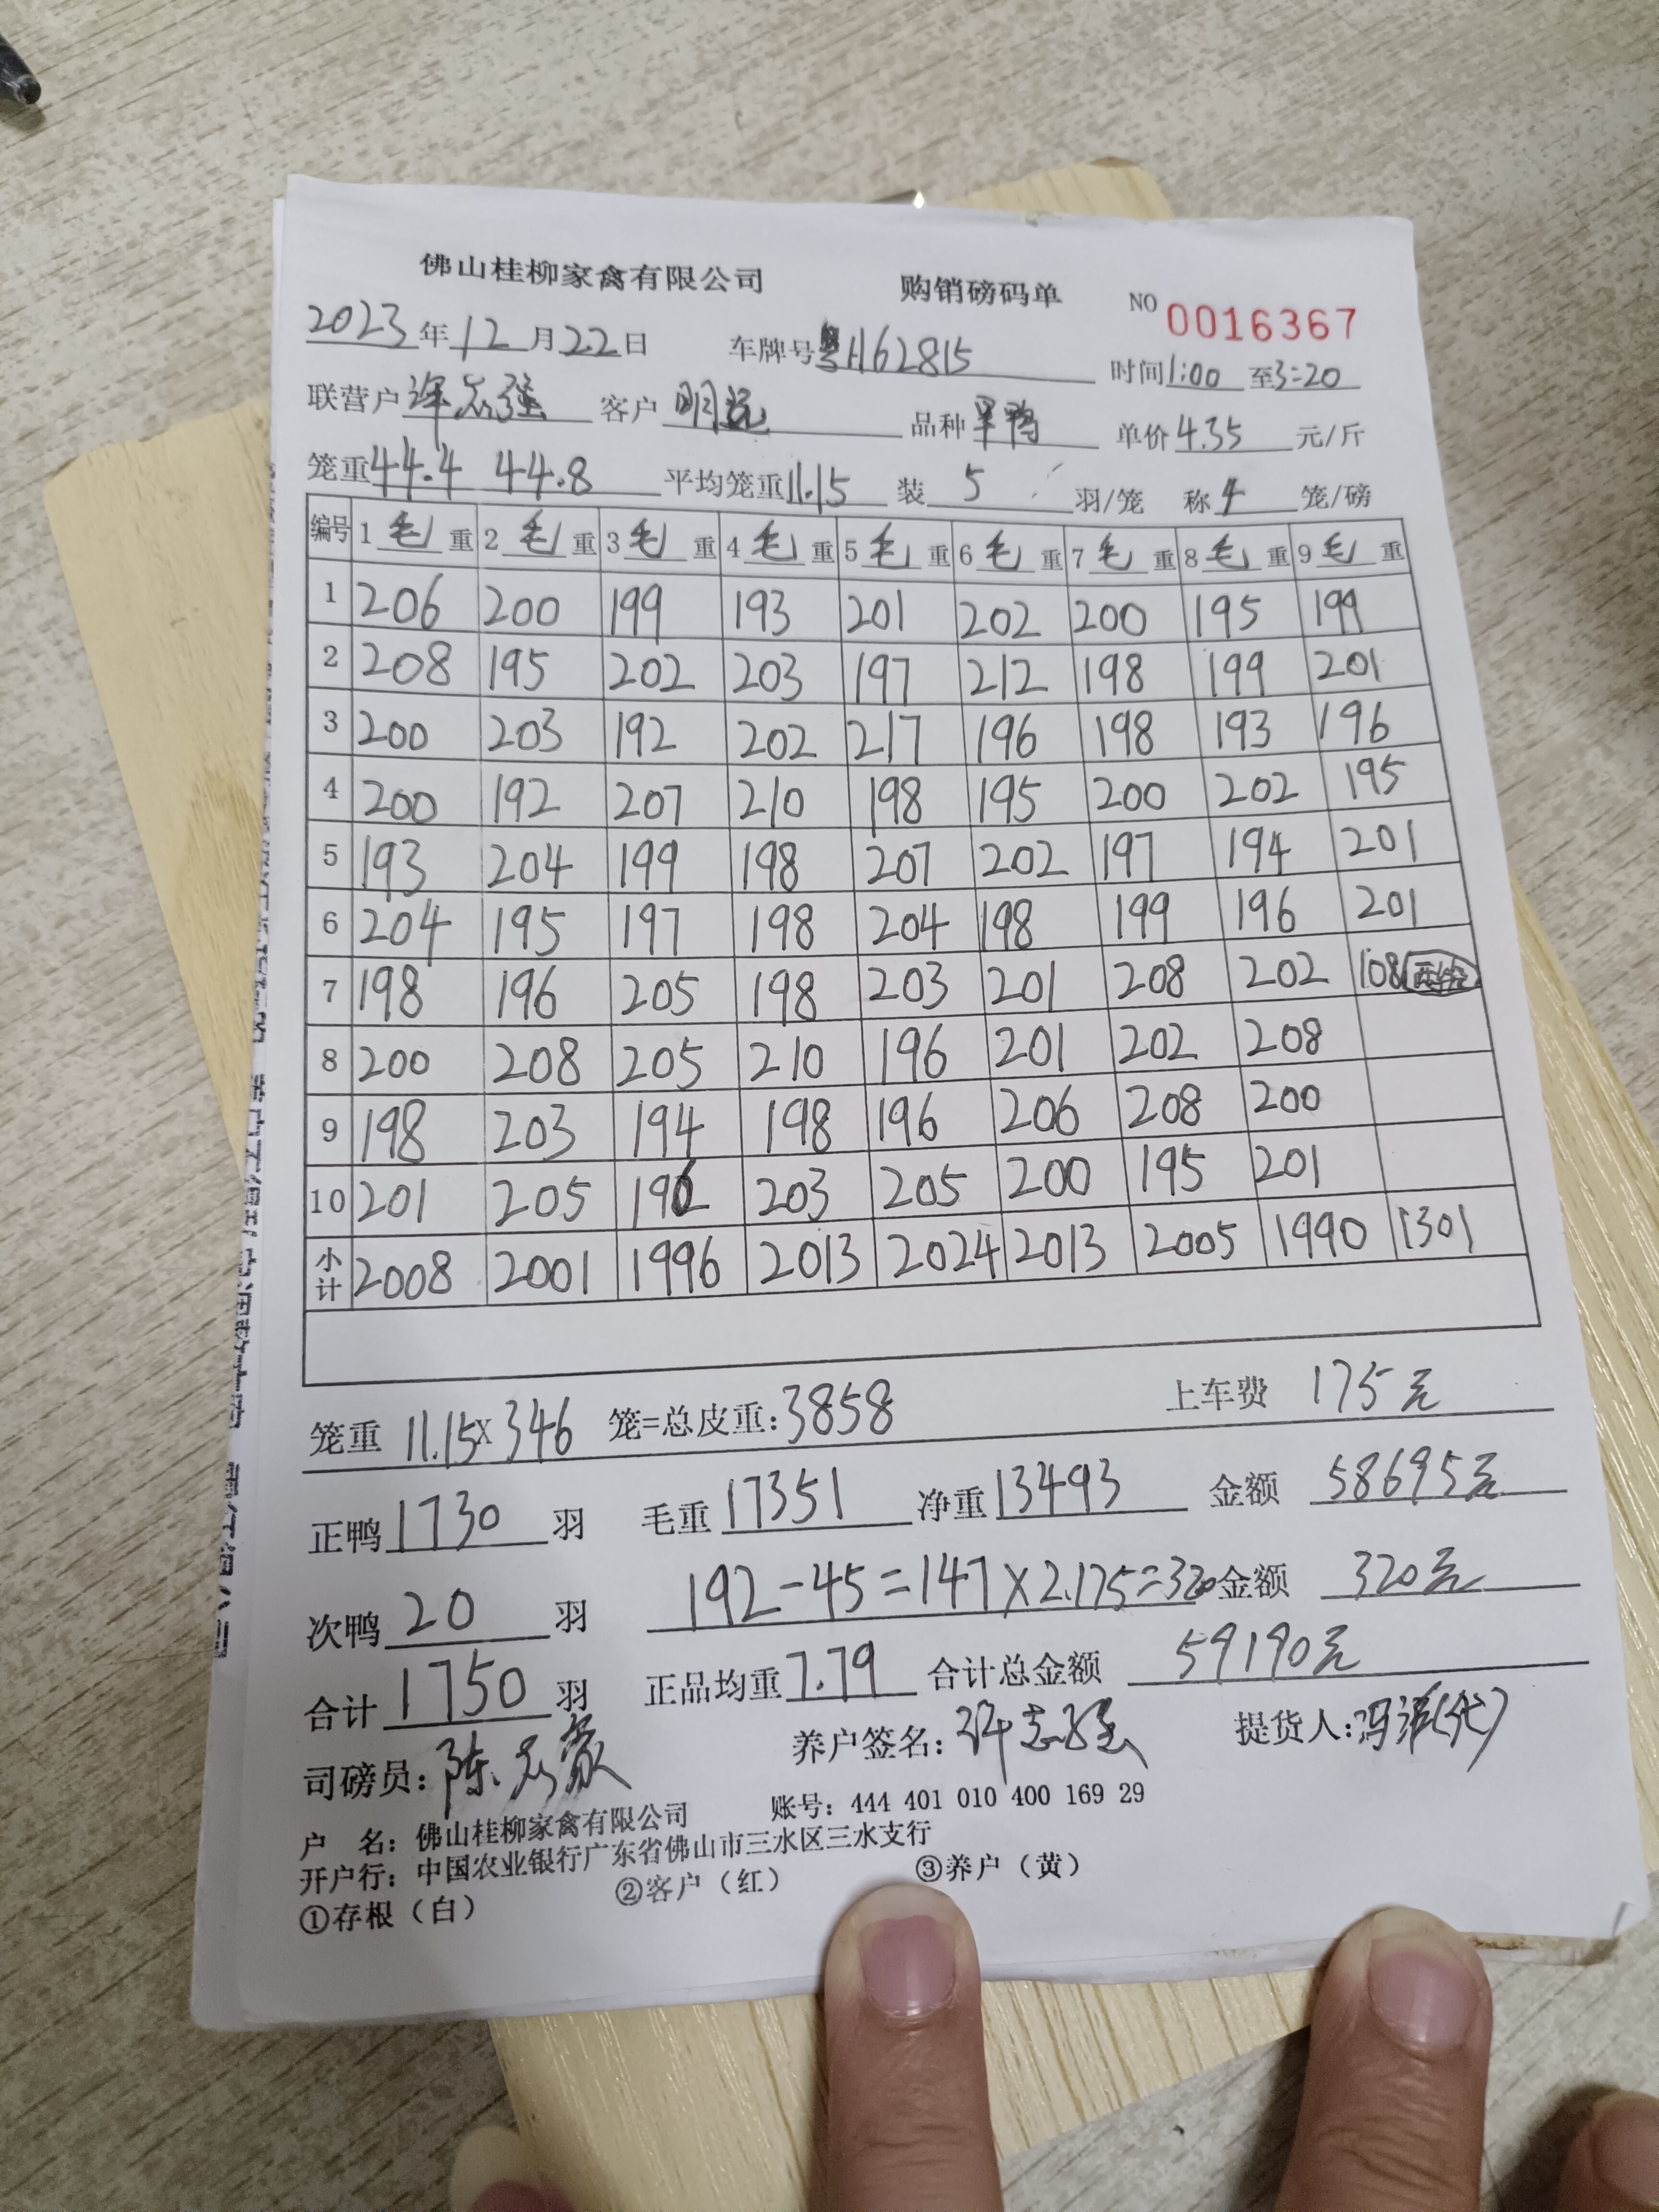 佛山桂柳家禽有限公司 购销磅码单 NO 0016367
2023年12月22日 车牌号粤H62815 时间1:00至3:20
联营户 客户 明 品种 鸭 单价4.35元/斤
笼重44.4 44.8 平均笼重11.15 装5羽/笼 称4笼/磅
编号 1毛重 2毛重 3毛重 4毛重 5毛重 6毛重 7毛重 8毛重 9毛重
1 206 200 199 193 201 202 200 195 199
2 208 195 202 203 197 212 198 199 201
3 200 203 192 202 217 196 198 193 196
4 200 192 207 210 198 195 200 202 195
5 193 204 199 198 207 202 197 194 201
6 204 195 197 198 204 198 199 196 201
7 198 196 205 198 203 201 208 202 108
8 200 208 205 210 196 201 202 208
9 198 203 194 198 196 206 208 200
10 201 205 196 203 205 200 195 201
小计 2008 2001 1996 2013 2024 2013 2005 1990 1301
笼重 11.15×346 笼=总皮重:3858 上车费 175元
正鸭1730羽 毛重17351 净重13493 金额 58695元
次鸭20羽 192-45=147×2.175=320 金额 320元
合计1750羽 正品均重7.79 合计总金额 59190元
司磅员:陈 豪 养户签名:许志强 提货人:冯 (代)
户 名:佛山桂柳家禽有限公司 账号:444 401 010 400 169 29
开户行:中国农业银行广东省佛山市三水区三水支行
①存根(白) ②客户(红) ③养户(黄)